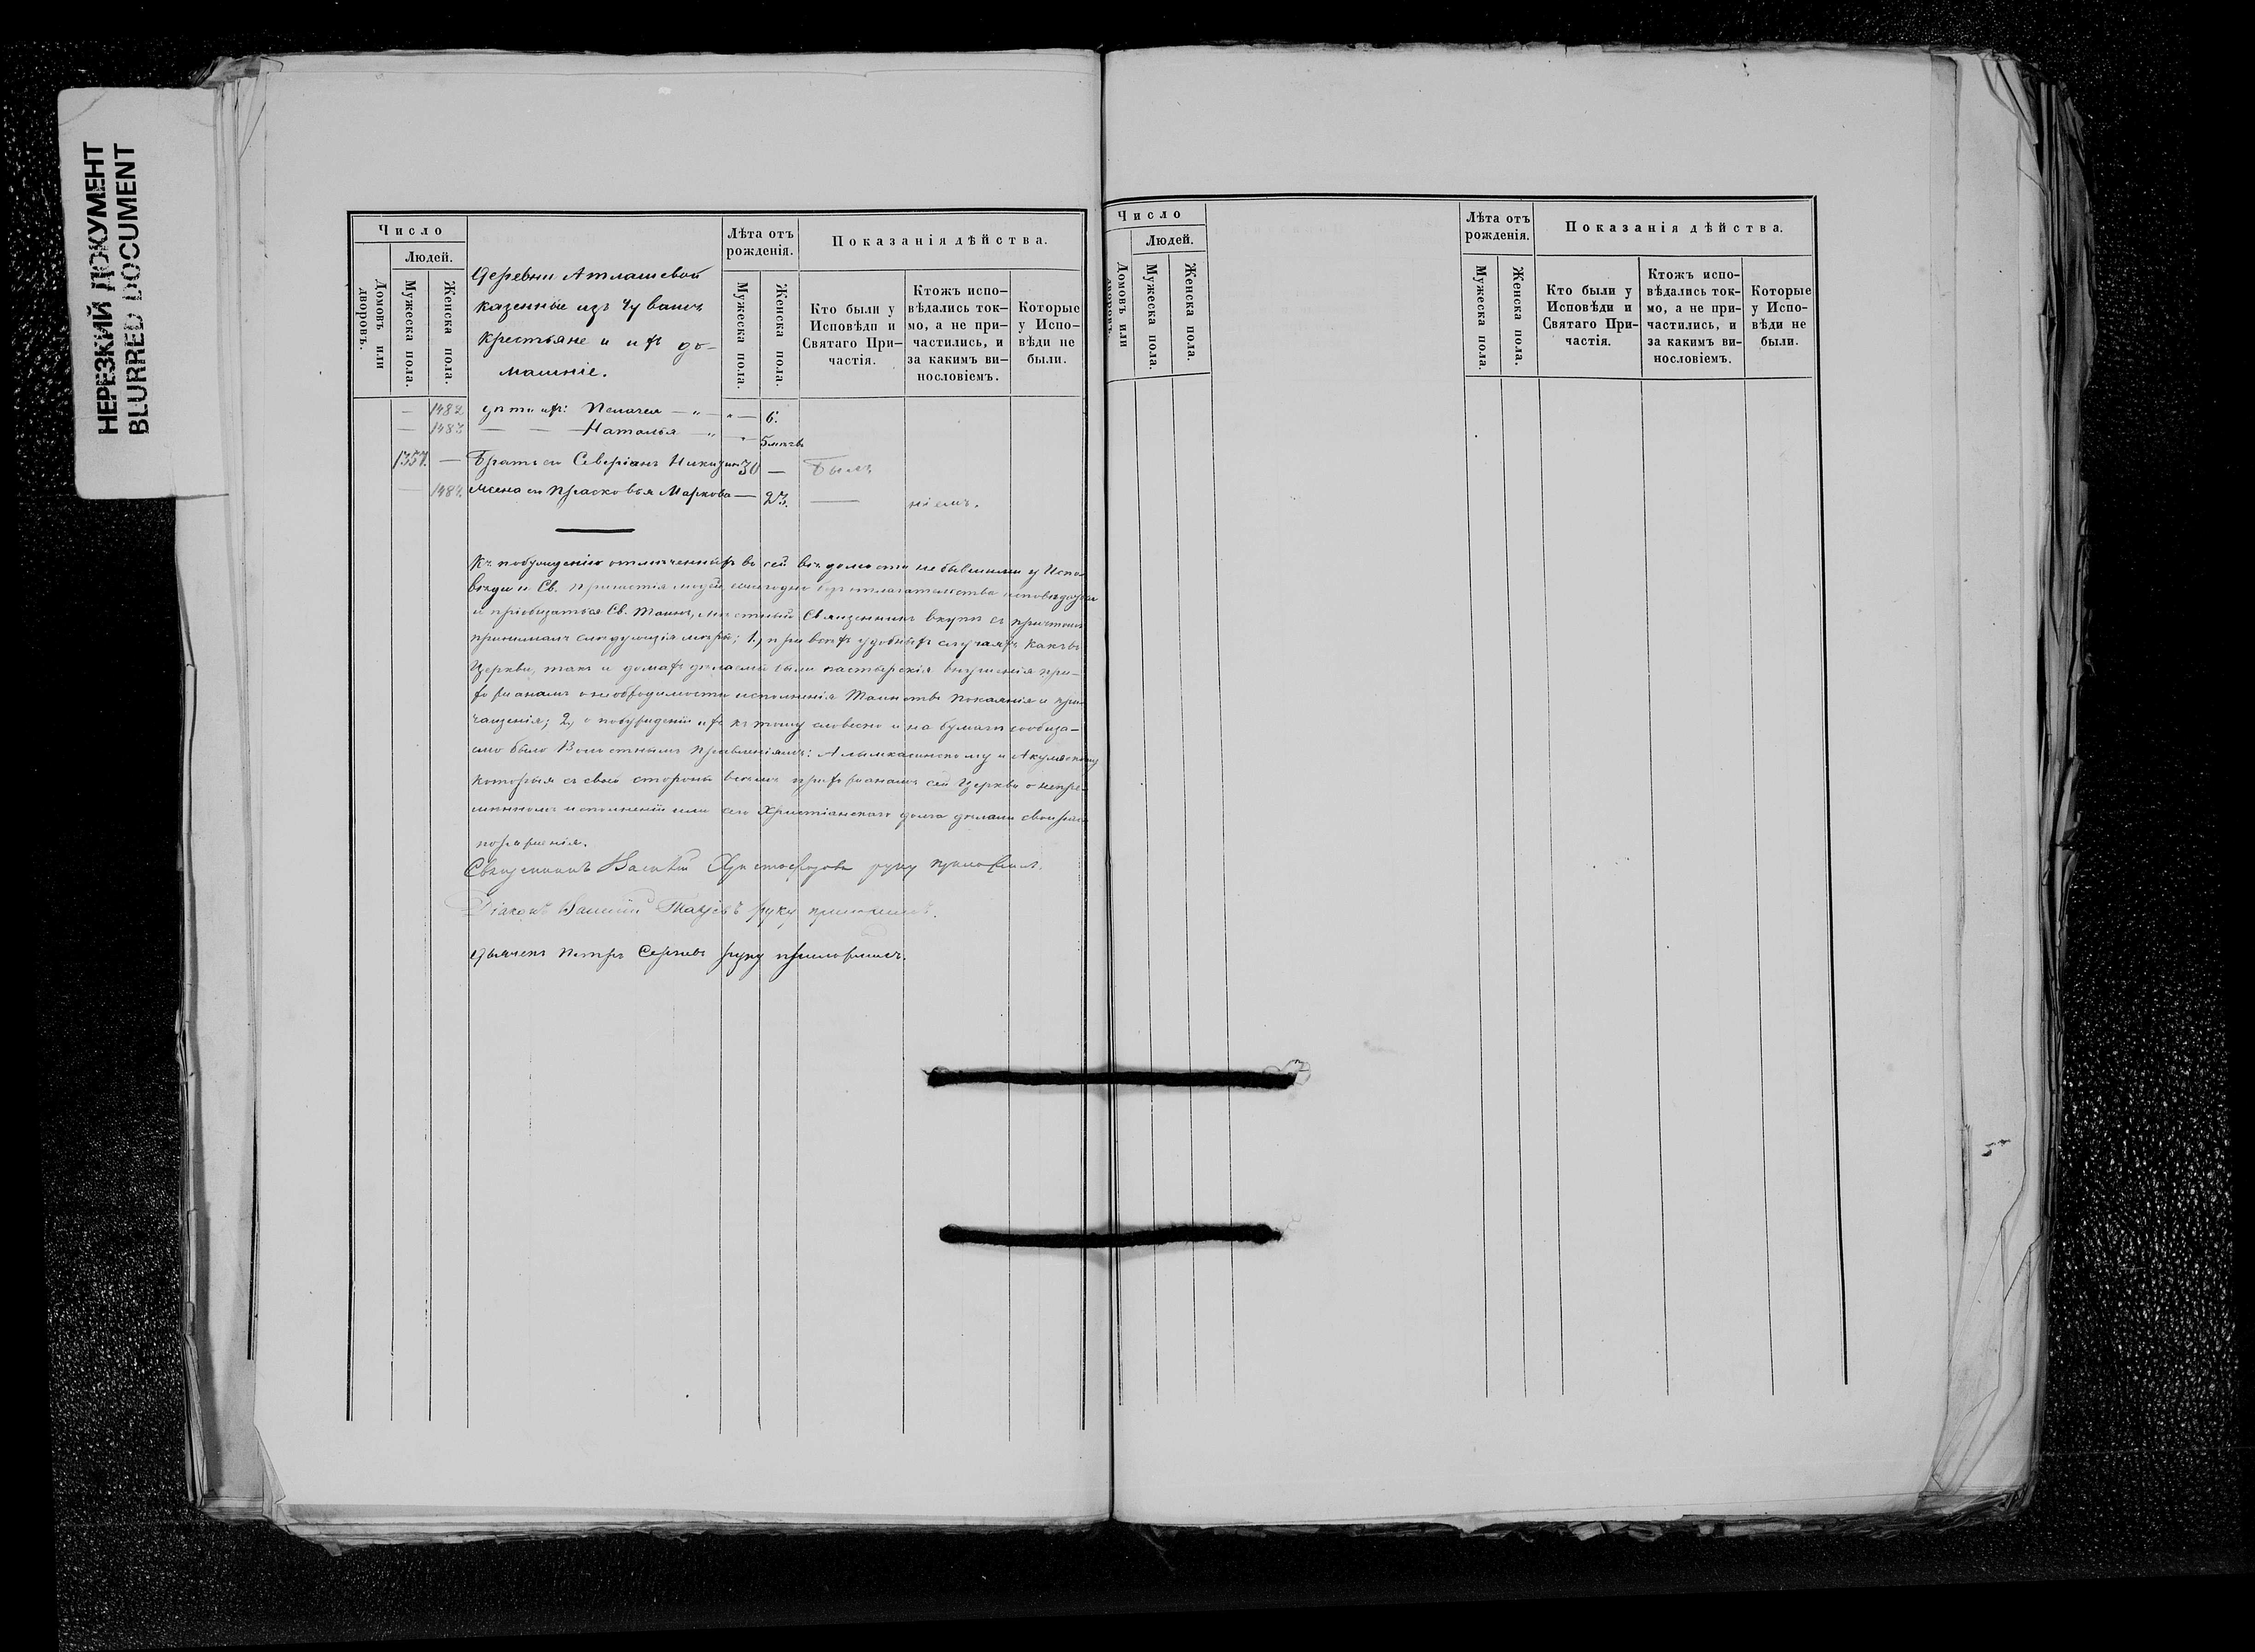 НЕРЕЗКИЙ ДОКУМЕНТ
BLURRED DOCUMENT
Число
Людей.
Домовъ или дворовъ.
Мужеска пола.
Женска пола.
Деревни Атлашевой
казенные изъ Чувашъ
Крестьяне и ихъ до-
машніе.
Лѣта отъ рожденія.
Мужеска пола.
Женска пола.
Показанія дѣйства.
Кто были у Исповѣди и Святаго При-частія.
Ктожъ испо-вѣдались ток-мо, а не при-частились, и за какимъ ви-нословіемъ.
Которые у Испо-вѣди не были.
— 1482 дѣти ихъ: Пелагея — " — " — 6.
— 1483 — — Наталья — " — " — 5 мѣсв
1357. — Братъ его Северіанъ Никитинъ 30 — Былъ
— 1484. Жена его Прасковья Маркова — 23. — ніемъ.
Къ побужденію отмѣченныхъ въ сей вѣдомости не бывшими у Испо-
вѣди и Св. Причастія людей, ежегодно безъ отлагательства исповѣдаться
и пріобщаться Св. Таинъ, мѣстный Священникъ вкупѣ съ причтомъ
принималъ слѣдующія мѣры; 1, при всѣхъ удобныхъ случаяхъ какъ въ
Церкви, такъ и домахъ дѣлаемы были пастырскія внушенія при-
хожанамъ о необходимости исполненія Таинствъ Покаянія и При-
чащенія; 2, о побужденіи ихъ къ тому словесно и на бумагѣ сообща-
емо было Волостнымъ Правленіямъ: Алымкасинскому и Акулевскому
которыя съ своей стороны всѣмъ прихожанамъ сей Церкви о непре-
мѣнномъ исполненіи ими сего Христіанскаго долга дѣлали свои рас-
поряженія.
Священникъ Василій Христофоровъ руку приложилъ.
Діаконъ Василій руку приложилъ.
Дьячекъ Петръ Сергѣевъ руку приложилъ.
Число
Людей.
Домовъ или дворовъ.
Мужеска пола.
Женска пола.
Лѣта отъ рожденія.
Мужеска пола.
Женска пола.
Показанія дѣйства.
Кто были у Исповѣди и Святаго При-частія.
Ктожъ испо-вѣдались ток-мо, а не при-частились, и за какимъ ви-нословіемъ.
Которые у Испо-вѣди не были.